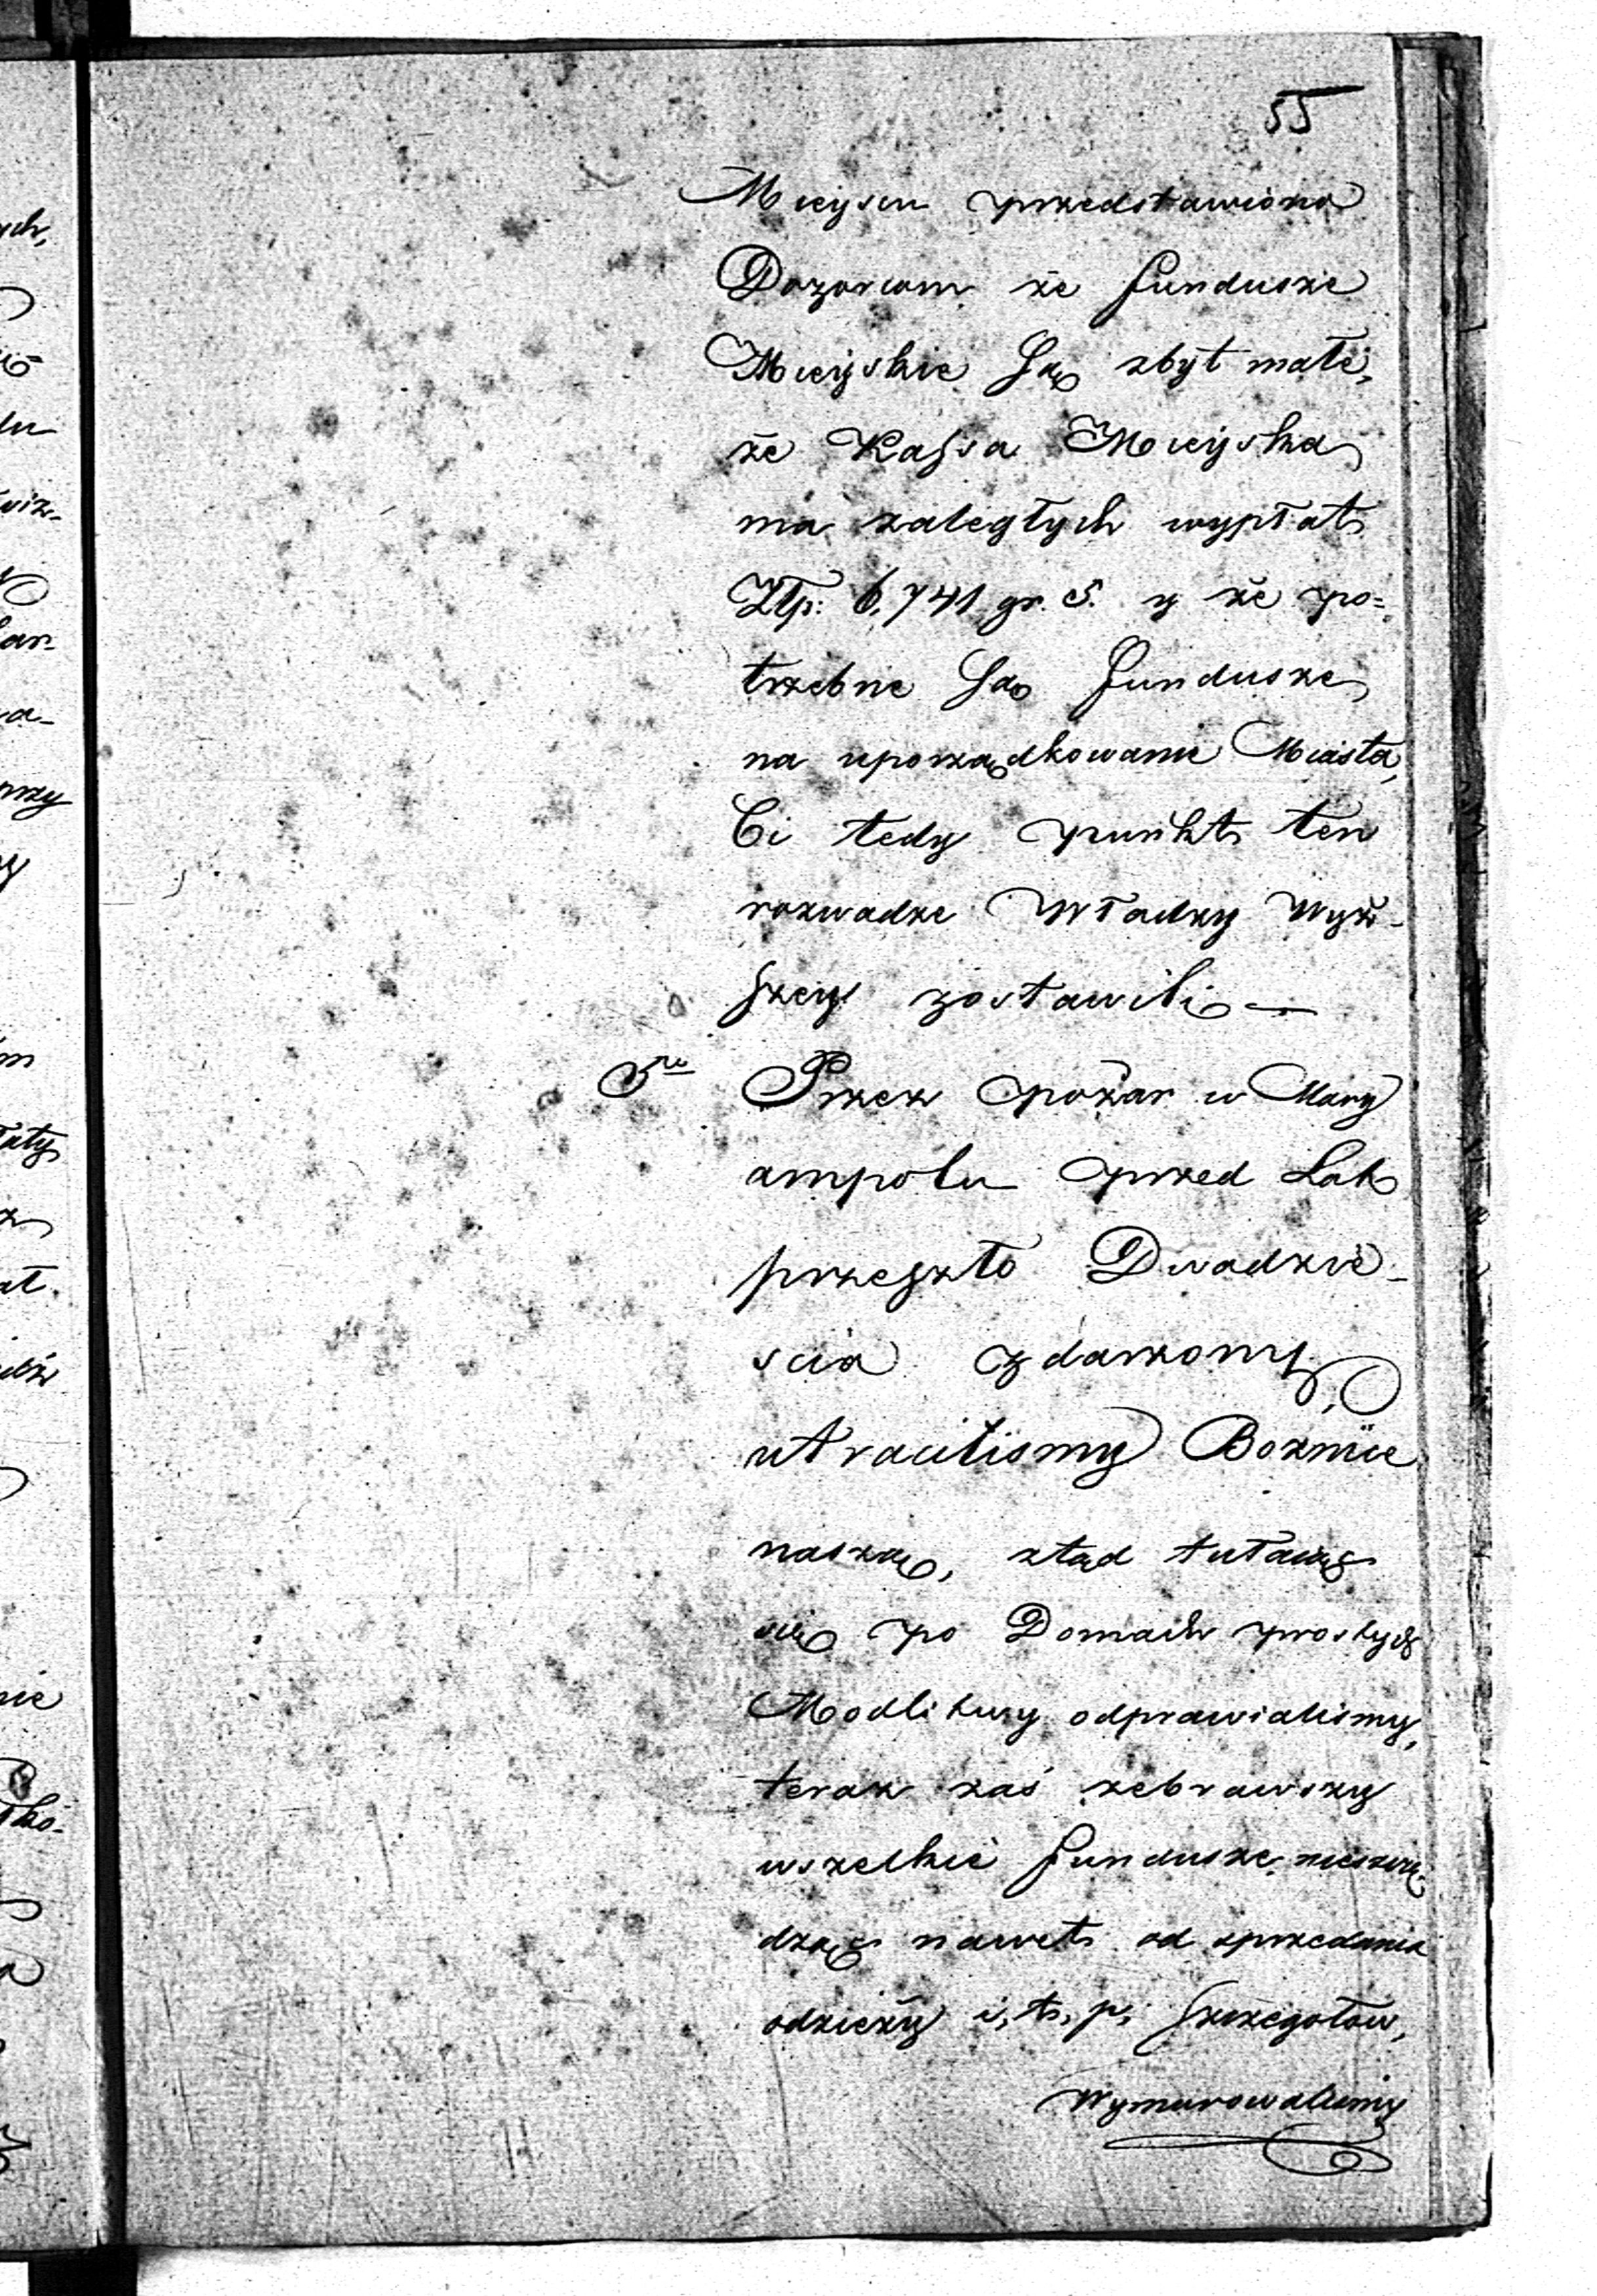 55
Mieyscu przedstawiono
Dozorcom że fundusze
Mieyskie Są zbyt małe,
że Kassa Mieyska
ma zaległych wypłat
Złp: 6,741 gr. 5. y że po=
trzebne Są fundusze
na uporządkowanie Miasta,
Ci tedy punkt ten
rozwadze Władzy Wyż-
szey zostawili —
5te Przez pożar w Mary
ampolu przed Lat
przeszło Dwadzie-
scia zdarzony,
utraciliśmy Boznice
naszą, ztąd tułaiąc
się po Domach prostych
Modlitwy odprawialismy,
teraz zaś zebrawszy
wszelkie fundusze nieszczę-
dząc nawet od sprzedania
odzieży i, t, p, szczegołow,
Wymurowalismy
ych,
du
wiz-
lar-
wa-
przy
łaty
at.
nie